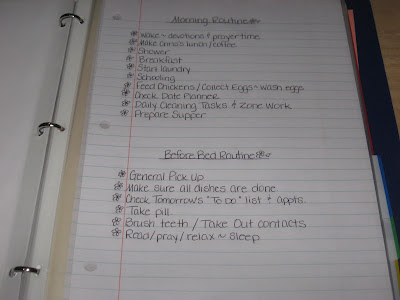 Morning Routine
Wake ~ devotions & prayer time
Make Chris's lunch/coffee
Shower
Breakfast
Start laundry
Schooling
Feed Chickens/Collect Eggs ~ wash eggs
Check Date Planner
Daily Cleaning Tasks & Zone Work
Prepare Supper
Before Bed Routine
General Pick Up
Make sure all dishes are done
Check Tomorrow's "To Do" list & appts.
Take pill
Brush teeth / Take Out contacts
Read/pray/relax ~ Sleep